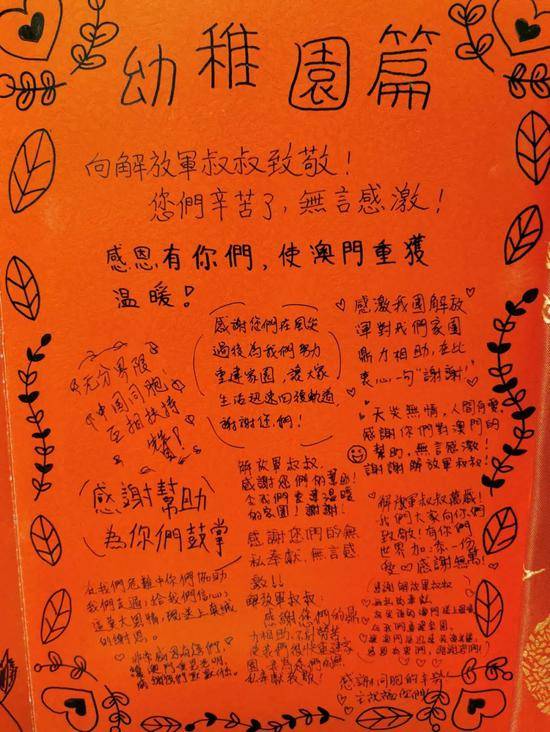 幼稚園篇
向解放軍叔叔致敬！
您們辛苦了，無言感激！
感恩有你們，使澳門重獲
温暖！
感謝您們在風災
過後為我們努力
重建家園，讓大家
生活迅速回復軌道，
謝謝您們！
感激我國解放
軍對我們家園
鼎力相助，在此
衷心一句“謝謝！”
不分界限，
中國同胞，
互相扶持
讚！
天災無情，人間有愛，
感謝你們對澳門的
幫助，無言感激！
謝謝解放軍叔叔！
感謝幫助
為你們鼓掌
解放軍叔叔，
感謝您們的幫助！
令我們重建温暖
的家園！謝謝！
感謝您們的無
私奉獻，無言感
激！！
解放軍叔叔萬歲！
我們大家向你們
致敬！有你們
世界加添一份
愛 感謝無蔦！
在我們危難中你們協助
我們走過，給我們信心，
這莫大恩情，獻上真誠
的謝恩。
解放軍叔叔：
感謝你們的鼎
力相助，不辭勞苦
感謝解放軍叔叔
無私的奉獻，
感謝同胞的辛勞